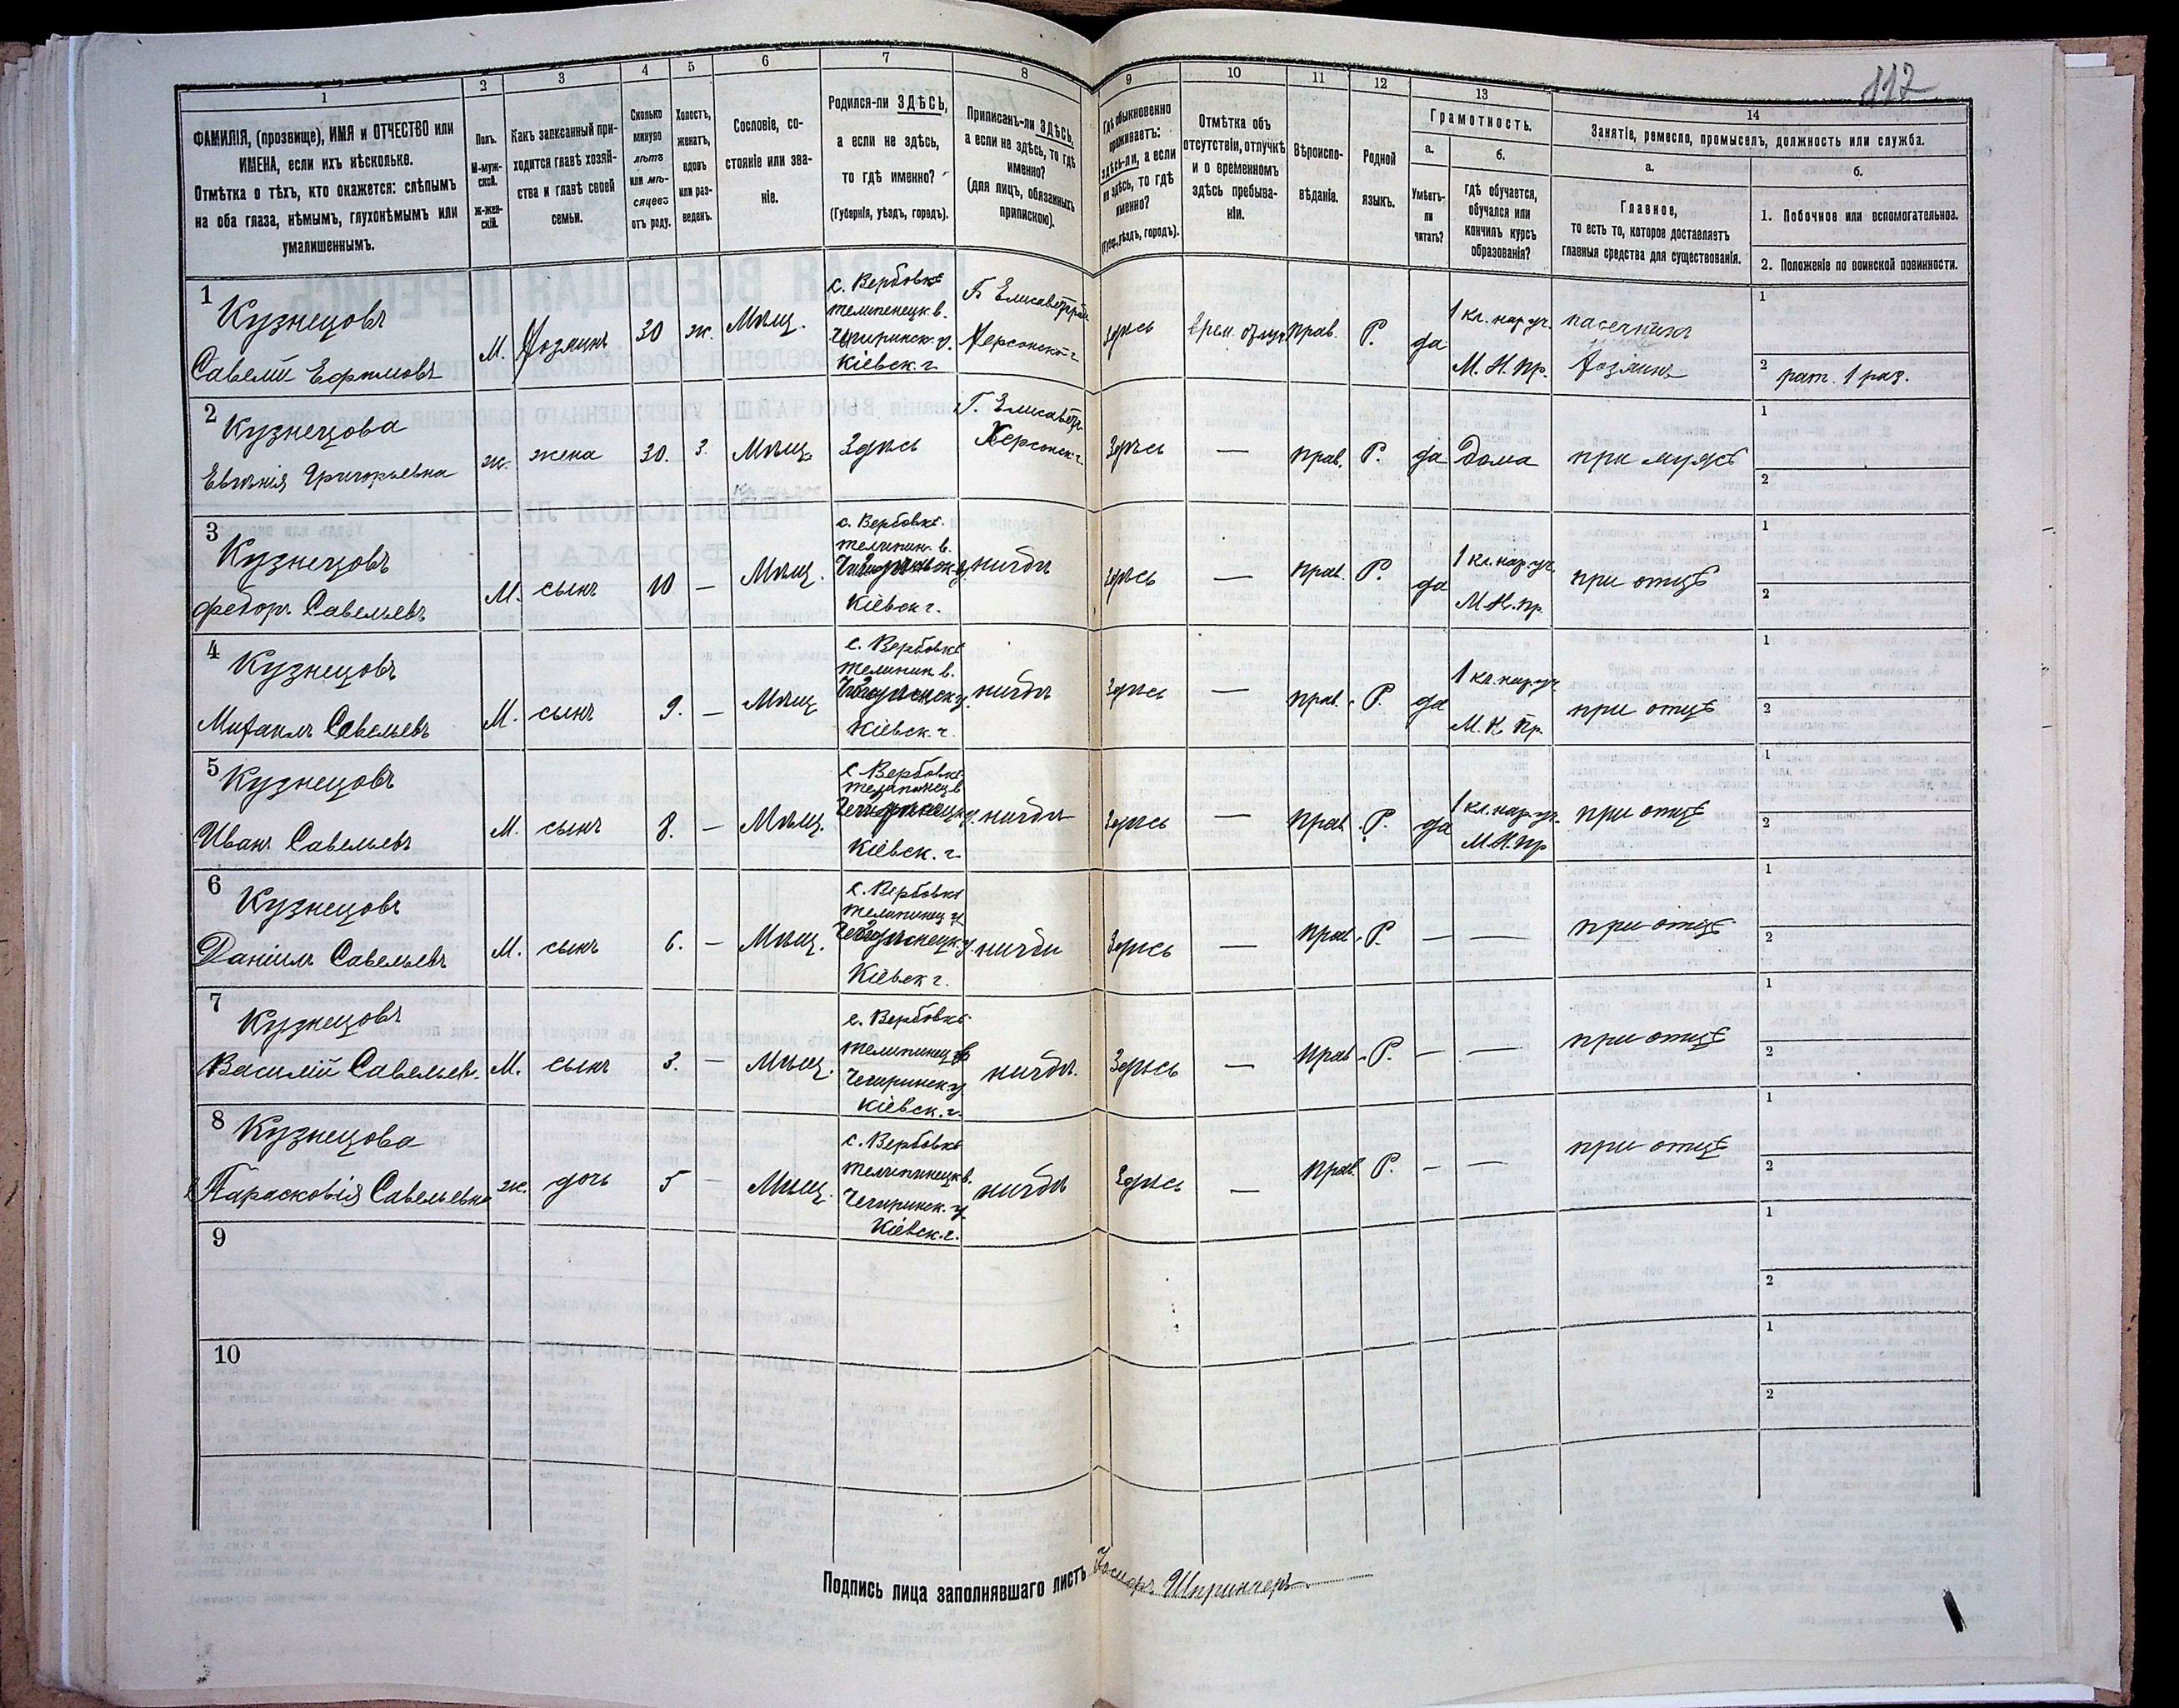 117
1
2
3
4
5
6
7
8
9
10
11
12
13
14
ФАМИЛІЯ, (прозвище), ИМЯ и ОТЧЕСТВО или
ИМЕНА, если ихъ нѣсколько.
Отмѣтка о тѣхъ, кто окажется: слѣпымъ
на оба глаза, нѣмымъ, глухонѣмымъ или
умалишеннымъ.
Полъ.
М-муж-
ской.
Ж-жен-
скій.
Какъ записанный при-
ходится главѣ хозяй-
ства и главѣ своей
семьи.
Сколько
минуло
лѣтъ
или мѣ-
сяцевъ
отъ роду.
Холостъ,
женатъ,
вдовъ
или раз-
веденъ.
Сословіе, со-
стояніе или зва-
ніе.
Родился-ли ЗДѢСЬ,
а если не здѣсь,
то гдѣ именно?
(Губернія, уѣздъ, городъ).
Приписанъ-ли ЗДѢСЬ,
а если не здѣсь, то гдѣ
именно?
(для лицъ, обязанныхъ
припискою).
Гдѣ обыкновенно
проживаетъ:
здѣсь-ли, а если
не здѣсь, то гдѣ
именно?
(Губ., уѣздъ, городъ).
Отмѣтка объ
отсутствіи, отлучкѣ
и о временномъ
здѣсь пребыва-
ніи.
Вѣроиспо-
вѣданіе.
Родной
языкъ.
Грамотность.
а.
б.
Умѣетъ-
ли
читать?
гдѣ обучается,
обучался или
кончилъ курсъ
образованія?
Занятіе, ремесло, промыселъ, должность или служба.
а.
б.
Главное,
то есть то, которое доставляетъ
главныя средства для существованія.
1. Побочное или вспомогательное.
2. Положеніе по воинской повинности.
1
Кузнецовъ
Савелій Ефимовъ
М.
Хозяинъ
30
ж.
Мѣщ.
с. Вербовкѣ
Чигиринск. у.
Кіевск. г.
Г. Елисаветград
Херсонск. г.
Здѣсь
врем. отлуч.
прав.
Р.
да
1 кл. нар. уч.
М. Н. Пр.
пасечникъ
Хозяинъ
1
2 рат. 1 раз.
2
Кузнецова
Евгенія Григорьевна
ж.
жена
30.
з.
Мѣщ.
Здѣсь
Г. Елисаветг.
Херсонск. г.
Здѣсь
—
прав.
Р.
да
Дома
при мужѣ
1
2
3
Кузнецовъ
Федоръ Савельевъ
М.
сынъ
10
—
Мѣщ.
с. Вербовкѣ
Кіевск г.
нигдѣ
здѣсь
—
прав.
Р.
да
1 кл. нар. уч.
М. Н. Пр.
при отцѣ
1
2
4
Кузнецовъ
Михаилъ Савельевъ
М.
сынъ
9.
—
Мѣщ
с. Вербовкѣ
Кіевск. г.
нигдѣ
Здѣсь
—
прав.
Р.
да
1 кл. нар. уч.
М. Н. Пр.
при отцѣ
1
2
5
Кузнецовъ
Иванъ Савельевъ
М.
сынъ
8.
—
Мѣщ.
с Вербовкѣ
Кіевск. г.
нигдѣ
Здѣсь
—
прав.
Р.
да
1 кл. нар. уч.
М. Н. Пр
при отцѣ
1
2
6
Кузнецовъ
Даніилъ Савельевъ
М.
сынъ
6.
—
Мѣщ.
с. Вербовкѣ
Кіевск г.
нигдѣ
Здѣсь
—
прав.
Р.
—
—
при отцѣ
1
2
7
Кузнецовъ
Василій Савельев.
М.
сынъ
3.
—
Мѣщ.
с. Вербовкѣ
Чегиринск. у
Кіевск. г.
нигдѣ.
Здѣсь
—
прав.
Р.
—
—
при отцѣ
1
2
8
Кузнецова
Парасковія Савельевна
ж.
дочь
5
—
Мѣщ.
с. Вербовкѣ
Чегиринск. у.
Кіевск. г.
нигдѣ
Здѣсь
—
прав.
Р.
—
—
при отцѣ
1
2
9
1
2
10
1
2
Подпись лица заполнявшаго листъ